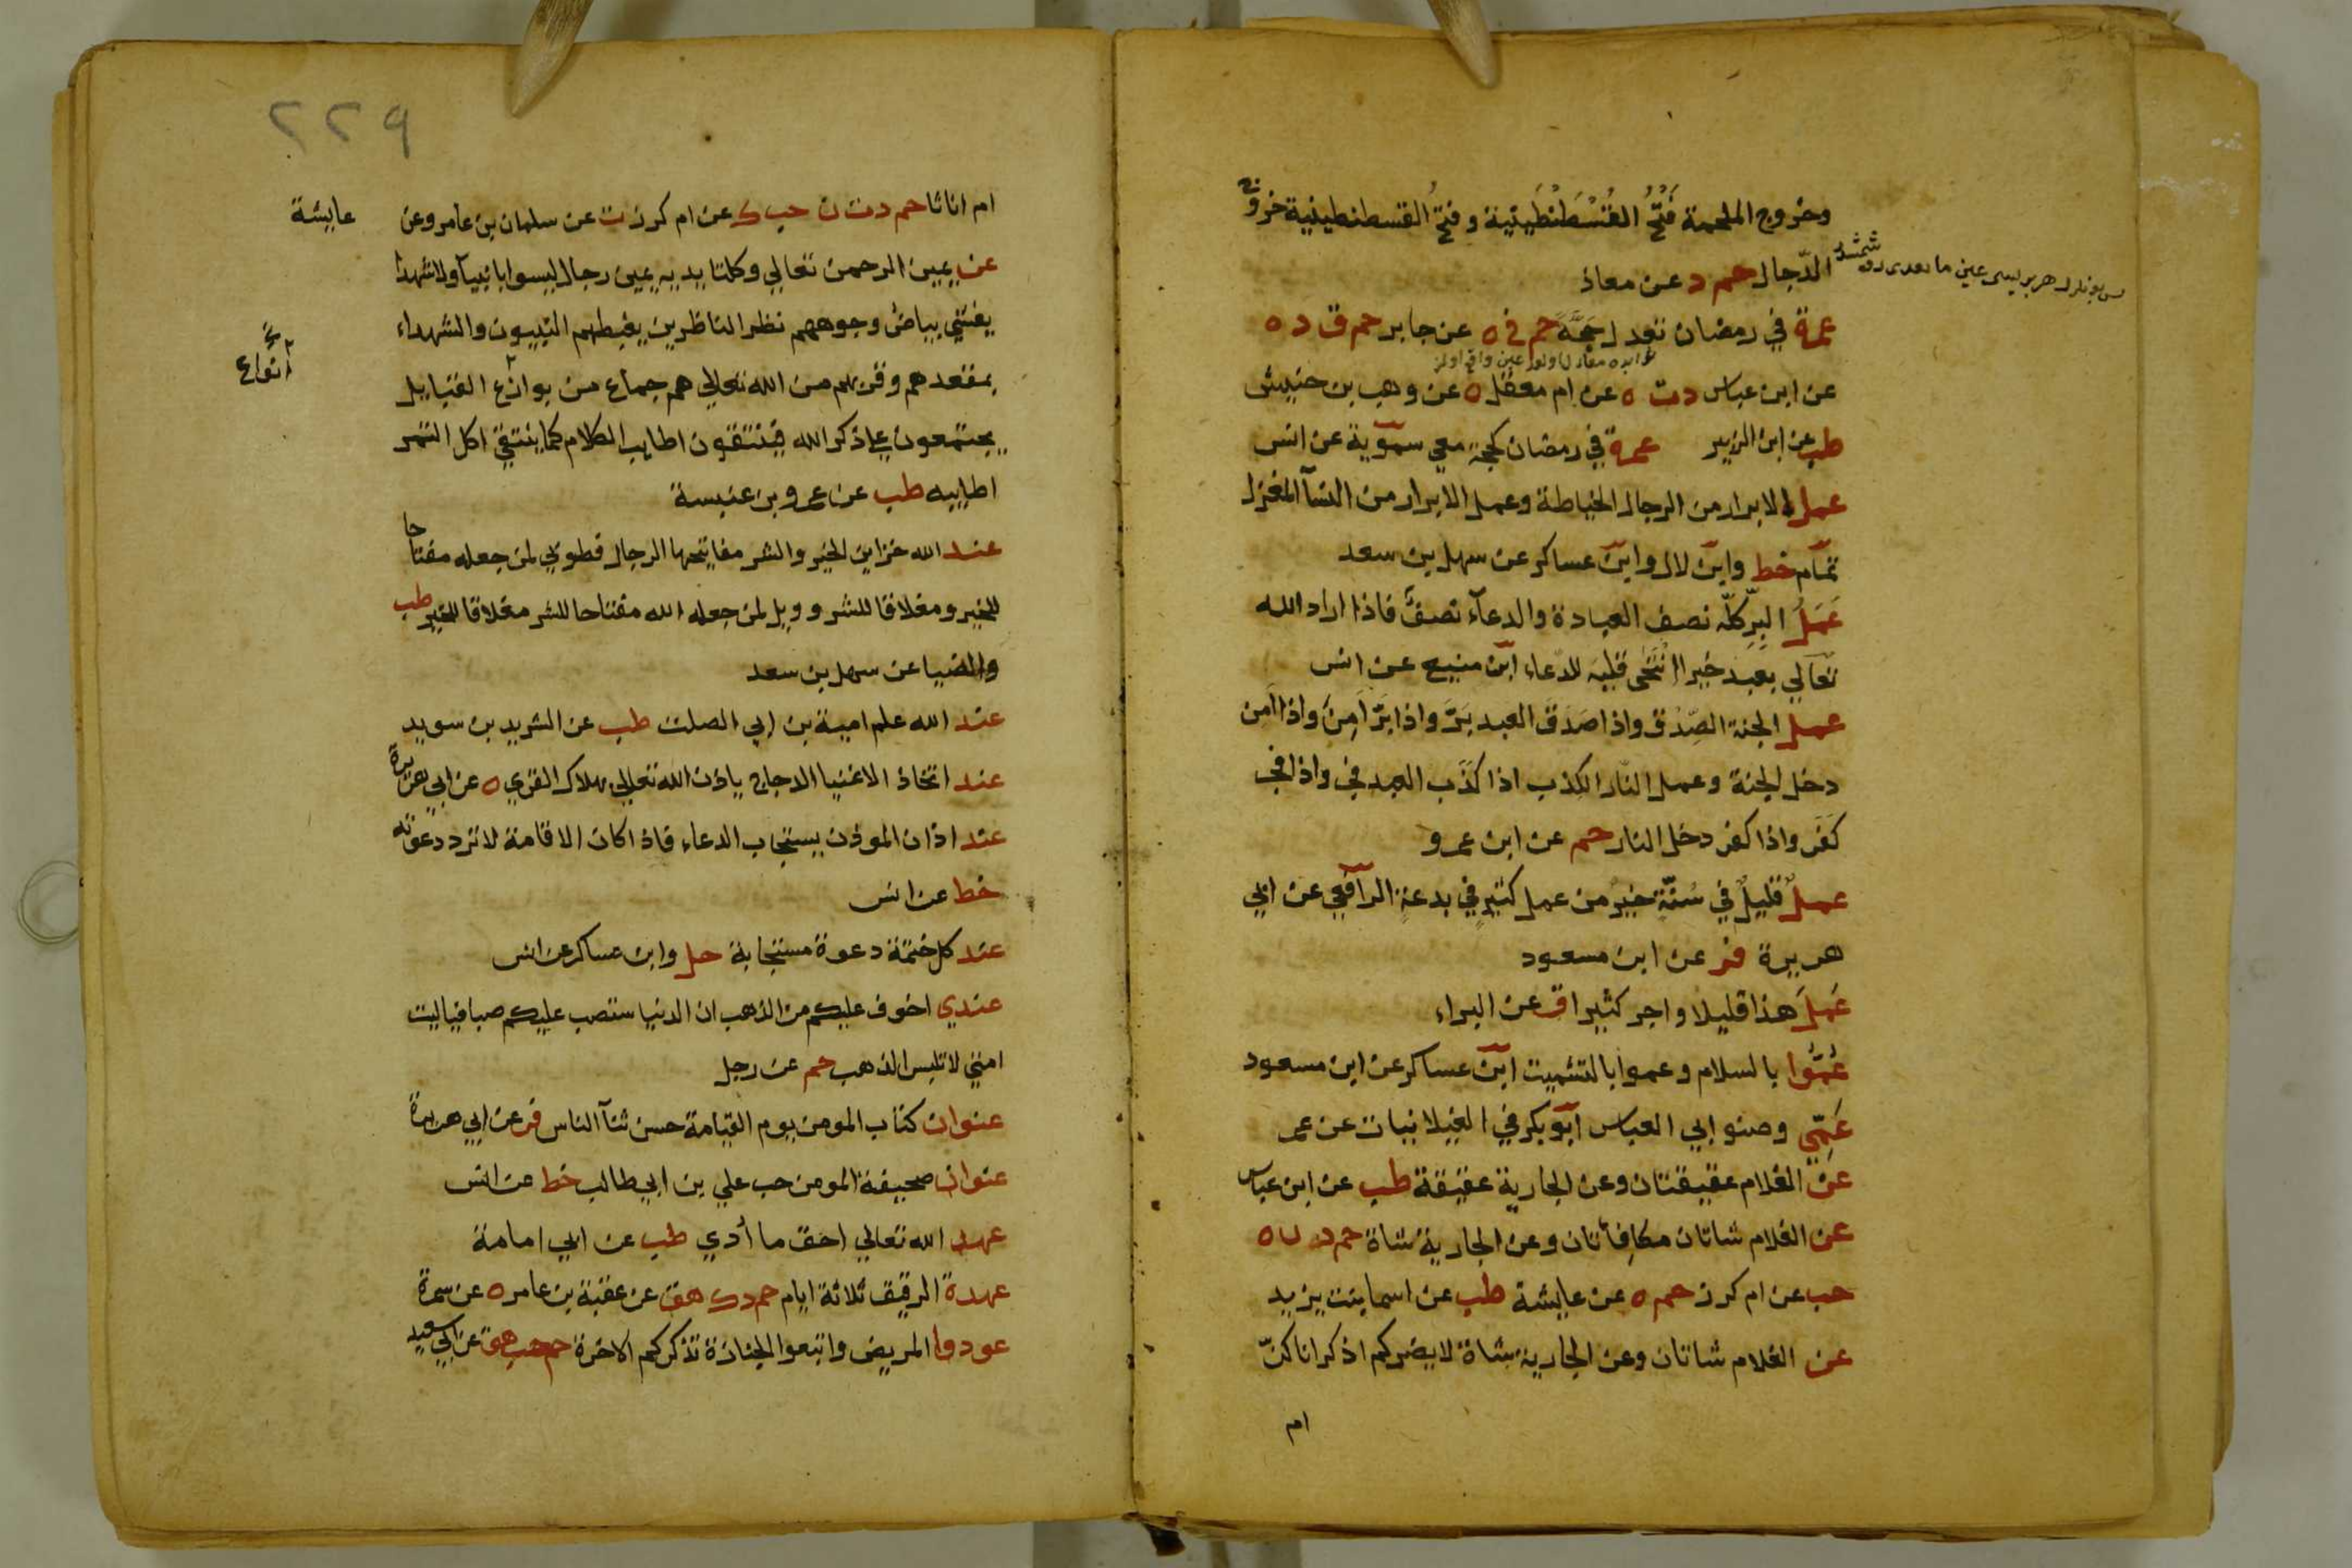 وخروج الملحمة فَتْحُ القُسْطَنْطِينِيّة وفتحُ القسطنطينية خروج
الدّجال حم د عن معاذ
عمرة في رمضان تعدل حَجَّةً حم خ ه عن جابر حم ق د ه
عن ابن عباس د ت ه عن ام معقل ه عن وهب بن خنيبش
طب عن ابن الزبير عمرة في رمضان كحجة معي سمّوية عن انس
عمل الابرار من الرجال الخياطة وعمل الابرار من النسآ المغزل
تمّام خط وابن لال وابن عساكر عن سهل بن سعد
عَمَلُ البِرِّ كلّه نصف العبادة والدعآء نصفٌ فاذا اراد الله
تعالي بعبد خيرا انْتَحَى قلبَه للدعاء ابن منيع عن انس
عمل الجنة الصِّدْق واذا صَدَق العبد بَرَّ واذا بَرَّ آمِنَ واذا آمن
دخل الجنة وعمل النّار الكذب اذا كذَب العبد فجر واذا فجر
كَفَر واذا كفر دخل النار حم عن ابن عمرو
عملٌ قليلٌ في سُنّةٍ خيرٌ من عمل كثيرٍ في بدعةٍ الرافعي عن ابي
هريرة فر عن ابن مسعود
عَمِلَ هذا قليلا واجر كثيرا ق عن البراء
عُمُّوا بالسلام وعموا بالتشميت ابن عساكر عن ابن مسعود
عَمِّي وصنو ابي العباس ابو بكر في الغيلانيات عن عمر
عن الغلام عقيقتان وعن الجارية عقيقة طب عن ابن عباس
عن الغلام شاتان مكافأتان وعن الجارية شاة حم د ن ه
حب عن ام كرز حم ه عن عايشة طب عن اسما بنت يزيد
عن الغلام شاتان وعن الجارية شاة لا يضركم اذكرانا كنّ
ام
٢٢٩
ام اناثا حم د ت ن حب ك عن ام كرز ت عن سلمان بن عامر وعن عايشة
عن يمين الرحمن تعالي وكلتا يديه يمين رجال ليسوا بانبيآ ولا شهدا
يغشي بياض وجوههم نظر الناظرين يغبطهم النبيون والشهداء
بمقعدهم وقربهم من الله تعالي هم جماع من نوازع القبايل
انواع
يجتمعون علي ذكر الله فينتقون اطايب الكلام كما ينتقي اكل التمر
اطايبه طب عن عمرو بن عنبسة
عند الله خزاين الخير والشر مفاتيحها الرجال فطوبي لمن جعله مفتاحا
للخير ومغلاقا للشر وويل لمن جعله الله مفتاحا للشر مغلاقا للخير طب
والضيا عن سهل بن سعد
عند الله علم امية بن ابي الصلت طب عن الشريد بن سويد
عند اتخاذ الاغنيا الدجاج ياذن الله تعالي بهلاك القري ه عن ابي هريرة
عند اذان الموذن يستجاب الدعاء فاذا كان الاقامة لا ترد دعوته
خط عن انس
عند كل ختمة دعوة مستجابة حل وابن عساكر عن انس
عندي اخوف عليكم من الذهب ان الدنيا ستصب عليكم صبا فياليت
امتي لا تلبس الذهب حم عن رجل
عنوان كتاب المومن يوم القيامة حسن ثنآ الناس فر عن ابي هريرة
عنوان صحيفة المومن حب علي بن ابي طالب خط عن انس
عهد الله تعالي احق ما أُدي طب عن ابي امامة
عهدة الرقيق ثلاثة ايام حم د ك هق عن عقبة بن عامر ه عن سمرة
عودوا المريض واتبعوا الجنازة تذكركم الاخرة حم حب هق عن ابي سعيد